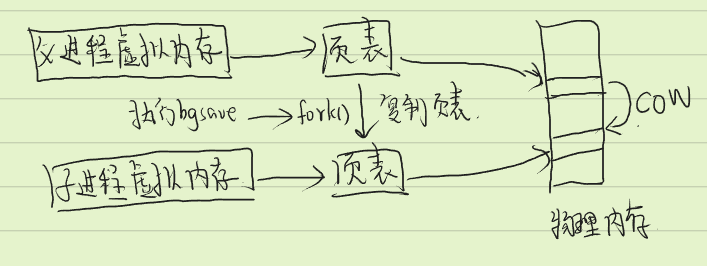 父进程虚拟内存 页表
执行bgsave fork() 复制页表.
COW
子进程虚拟内存 页表
物理内存